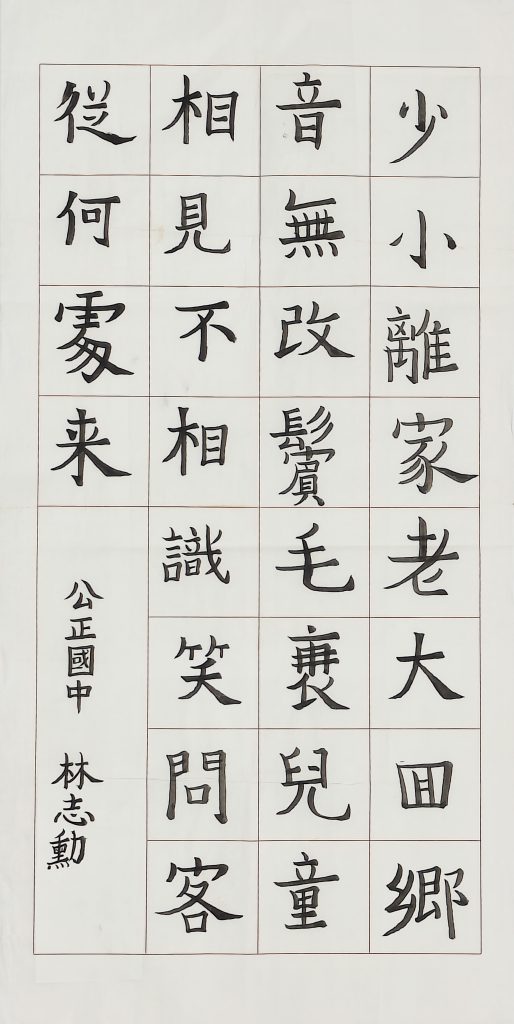 少小離家老大囬鄉
音無改鬢毛衰兒童
相見不相識笑問客
從何處来
公正國中 林志勳